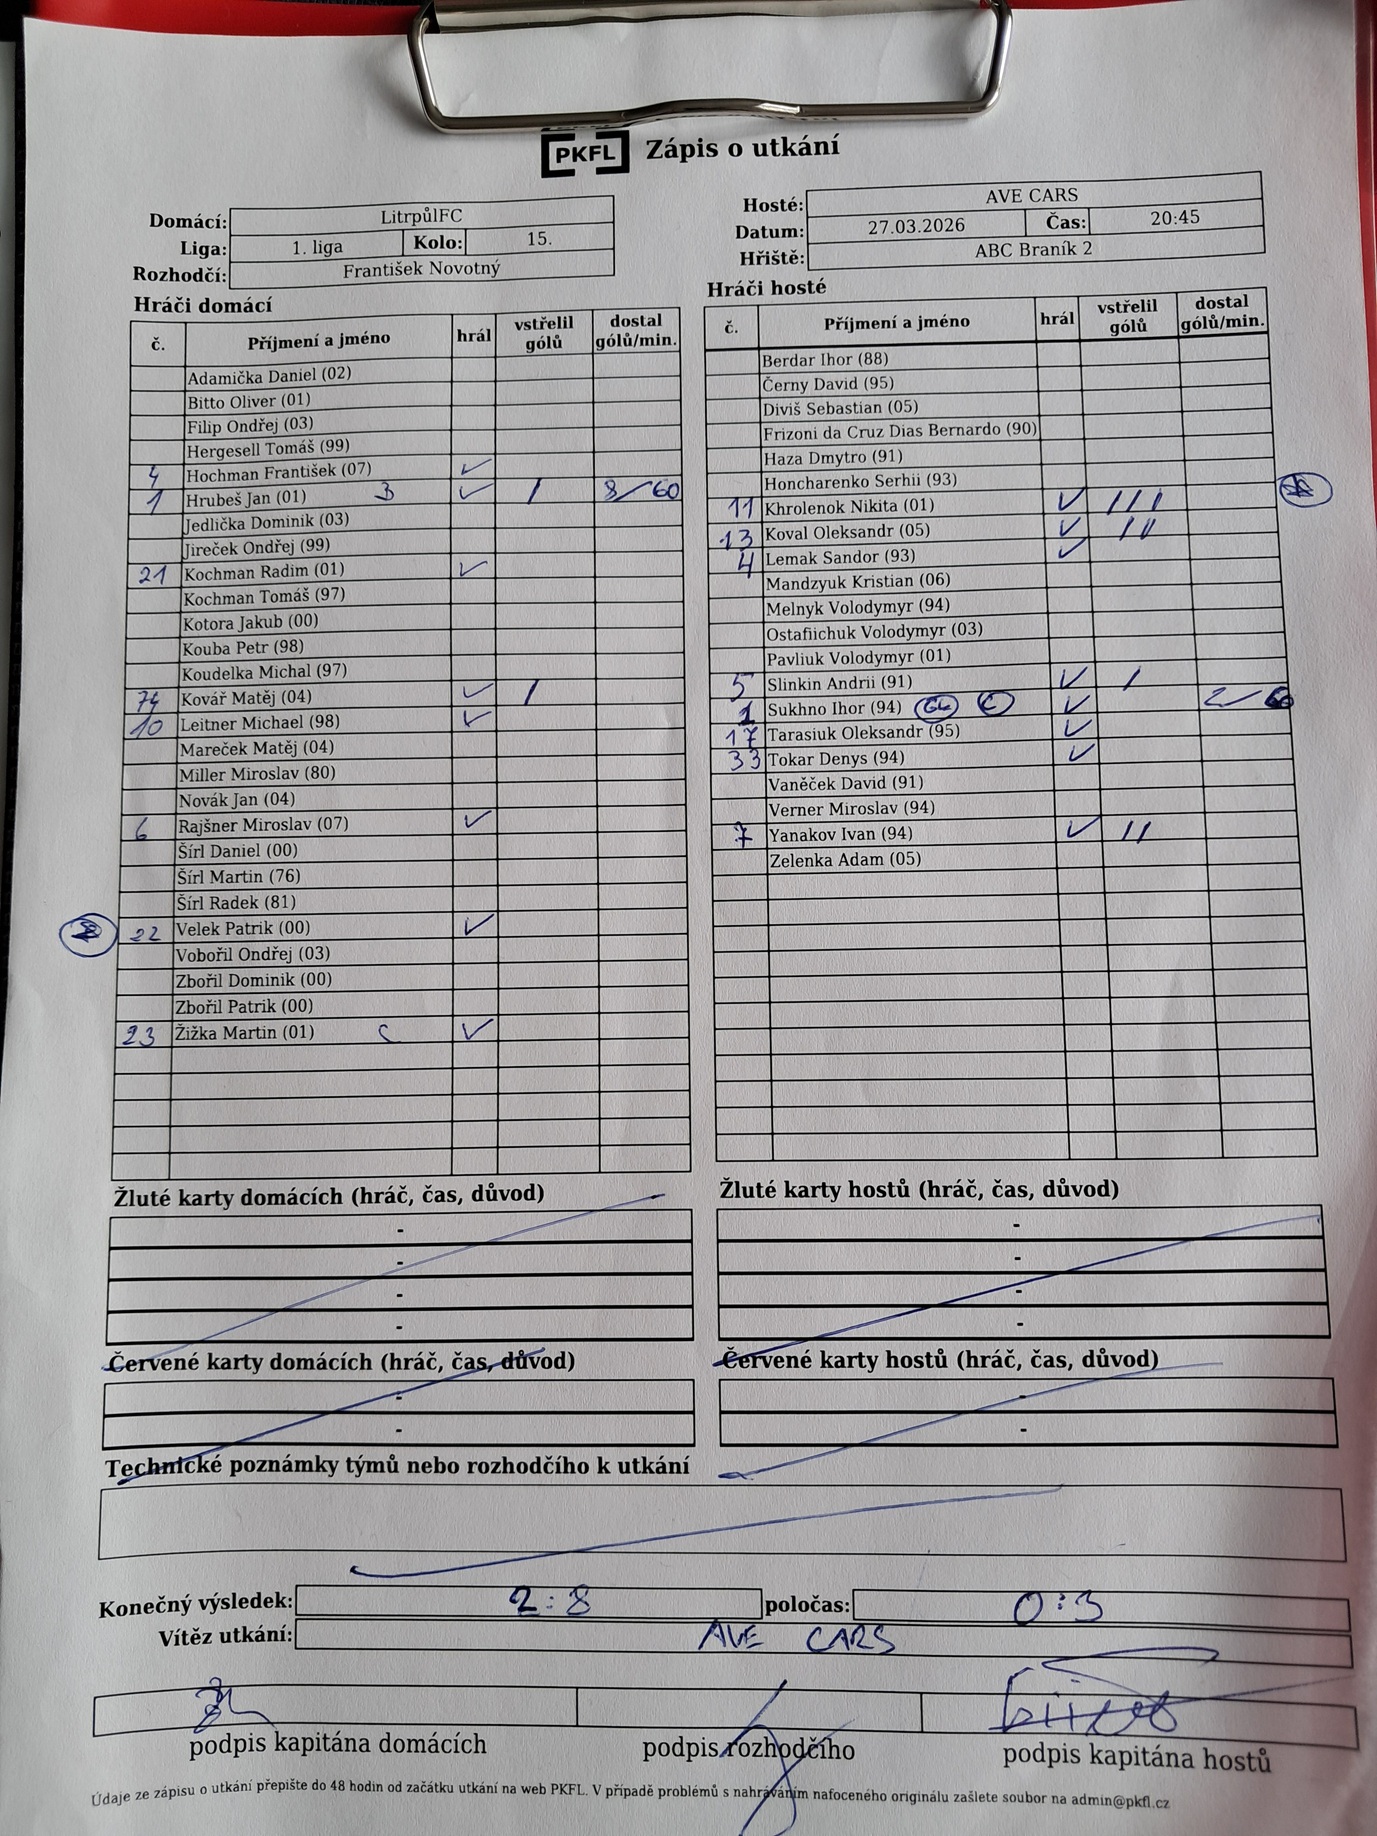 PKFL Zápis o utkání
Domácí: LitrpůlFC
Liga: 1. liga Kolo: 15.
Rozhodčí: František Novotný
Hosté: AVE CARS
Datum: 27.03.2026 Čas: 20:45
Hřiště: ABC Braník 2
Hráči domácí
č. Příjmení a jméno hrál vstřelil gólů dostal gólů/min.
Adamička Daniel (02)
Bitto Oliver (01)
Filip Ondřej (03)
Hergesell Tomáš (99)
4 Hochman František (07) ✓
1 Hrubeš Jan (01) B ✓ / 8/60
Jedlička Dominik (03)
Jireček Ondřej (99)
21 Kochman Radim (01) ✓
Kochman Tomáš (97)
Kotora Jakub (00)
Kouba Petr (98)
Koudelka Michal (97)
74 Kovář Matěj (04) ✓ /
10 Leitner Michael (98) ✓
Mareček Matěj (04)
Miller Miroslav (80)
Novák Jan (04)
6 Rajšner Miroslav (07) ✓
Šírl Daniel (00)
Šírl Martin (76)
Šírl Radek (81)
22 Velek Patrik (00) ✓
Vobořil Ondřej (03)
Zbořil Dominik (00)
Zbořil Patrik (00)
23 Žižka Martin (01) C ✓
Hráči hosté
č. Příjmení a jméno hrál vstřelil gólů dostal gólů/min.
Berdar Ihor (88)
Černy David (95)
Diviš Sebastian (05)
Frizoni da Cruz Dias Bernardo (90)
Haza Dmytro (91)
Honcharenko Serhii (93)
11 Khrolenok Nikita (01) ✓ / / /
13 Koval Oleksandr (05) ✓ / /
4 Lemak Sandor (93) ✓
Mandzyuk Kristian (06)
Melnyk Volodymyr (94)
Ostafiichuk Volodymyr (03)
Pavliuk Volodymyr (01)
5 Slinkin Andrii (91) ✓ /
1 Sukhno Ihor (94) GK C ✓ 2/60
17 Tarasiuk Oleksandr (95) ✓
33 Tokar Denys (94) ✓
Vaněček David (91)
Verner Miroslav (94)
7 Yanakov Ivan (94) ✓ / /
Zelenka Adam (05)
Žluté karty domácích (hráč, čas, důvod)
-
-
-
-
Žluté karty hostů (hráč, čas, důvod)
-
-
-
-
Červené karty domácích (hráč, čas, důvod)
-
-
Červené karty hostů (hráč, čas, důvod)
-
-
Technické poznámky týmů nebo rozhodčího k utkání
Konečný výsledek: 2:8 poločas: 0:3
Vítěz utkání: AVE CARS
podpis kapitána domácích podpis rozhodčího podpis kapitána hostů
Údaje ze zápisu o utkání přepište do 48 hodin od začátku utkání na web PKFL. V případě problémů s nahráváním nafoceného originálu zašlete soubor na admin@pkfl.cz